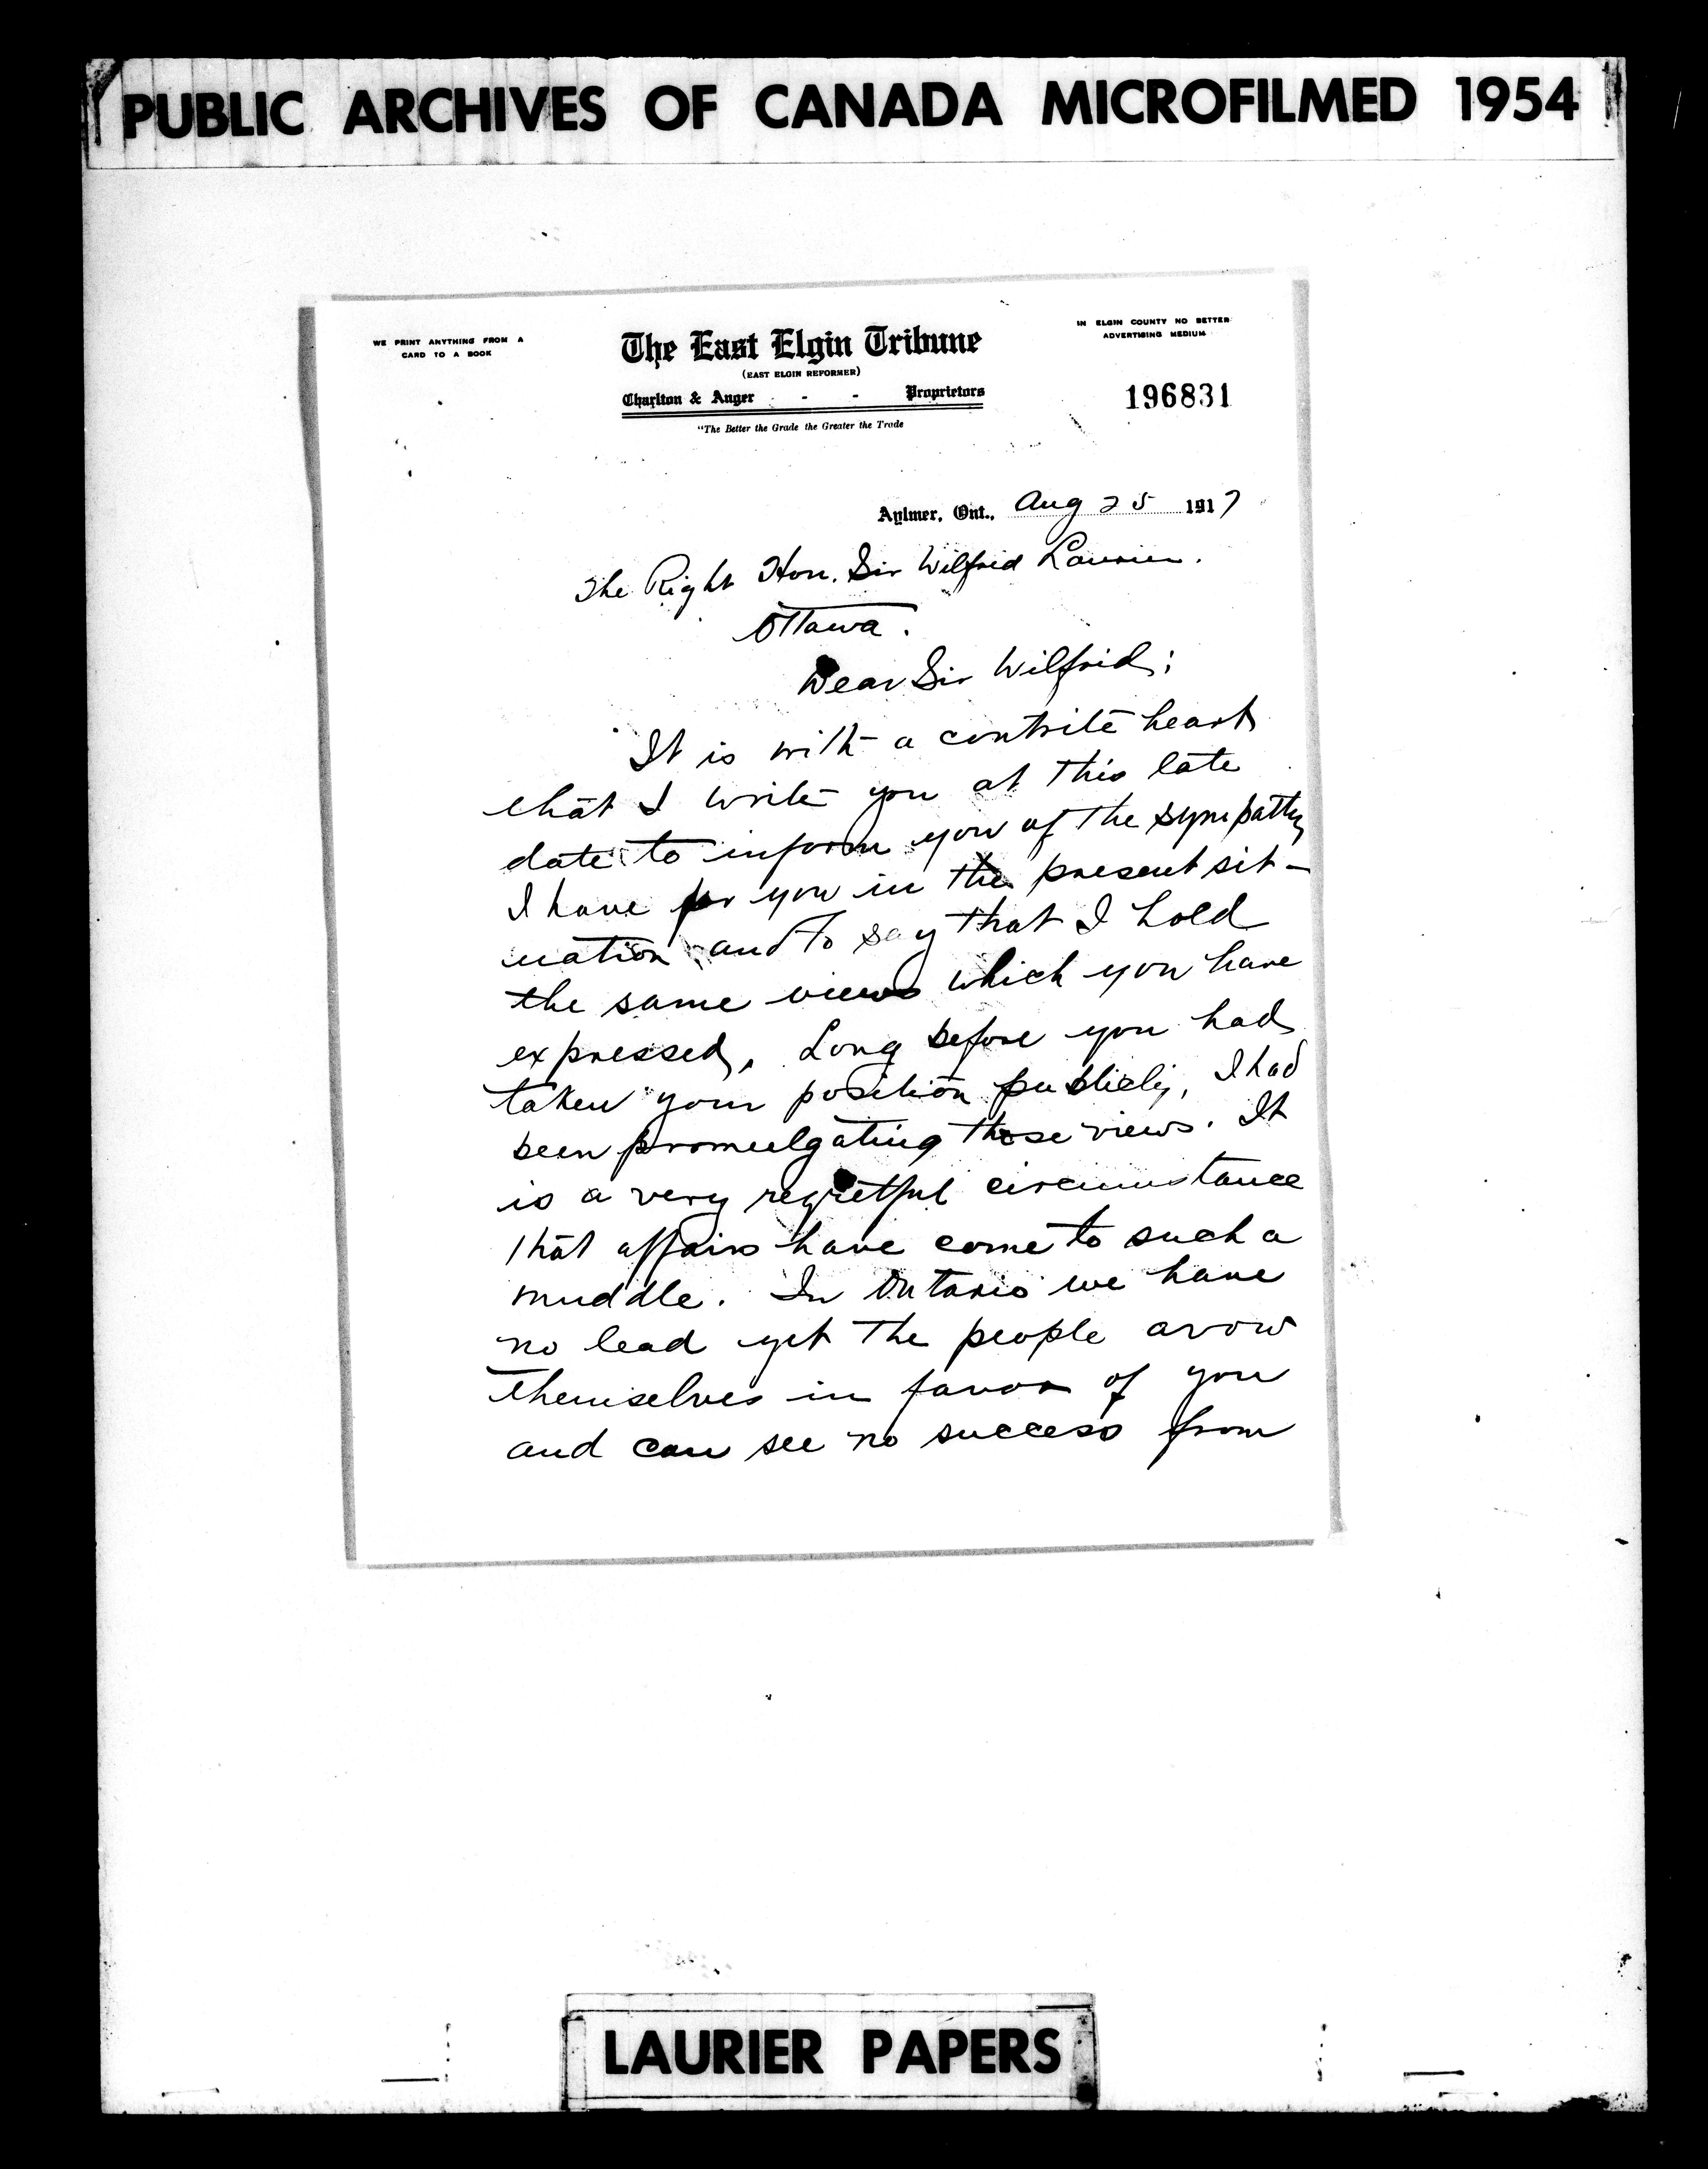 PUBLIC ARCHIVES OF CANADA MICROFILMED 1954
WE PRINT ANYTHING FROM A
CARD TO A BOOK
The East Elgin Tribune
(EAST ELGIN REFORMER)
Charlton & Anger - - Proprietors
"The Better the Grade the Greater the Trade
IN ELGIN COUNTY NO BETTER
ADVERTISING MEDIUM
196831
Aylmer, Ont., Aug 25 1917
The Right Hon. Sir Wilfrid Laurier.
Ottawa.
Dear Sir Wilfrid;
It is with a contrite heart
that I write you at this late
date to inform you of the sympathy
I have for you in the present sit-
uation and to say that I hold
the same views which you have
expressed. Long before you had
taken your position publicly, I had
been promulgating those views. It
is a very regretful circumstance
that affairs have come to such a
muddle. In Ontario we have
no lead yet the people avow
themselves in favor of you
and can see no success from
LAURIER PAPERS